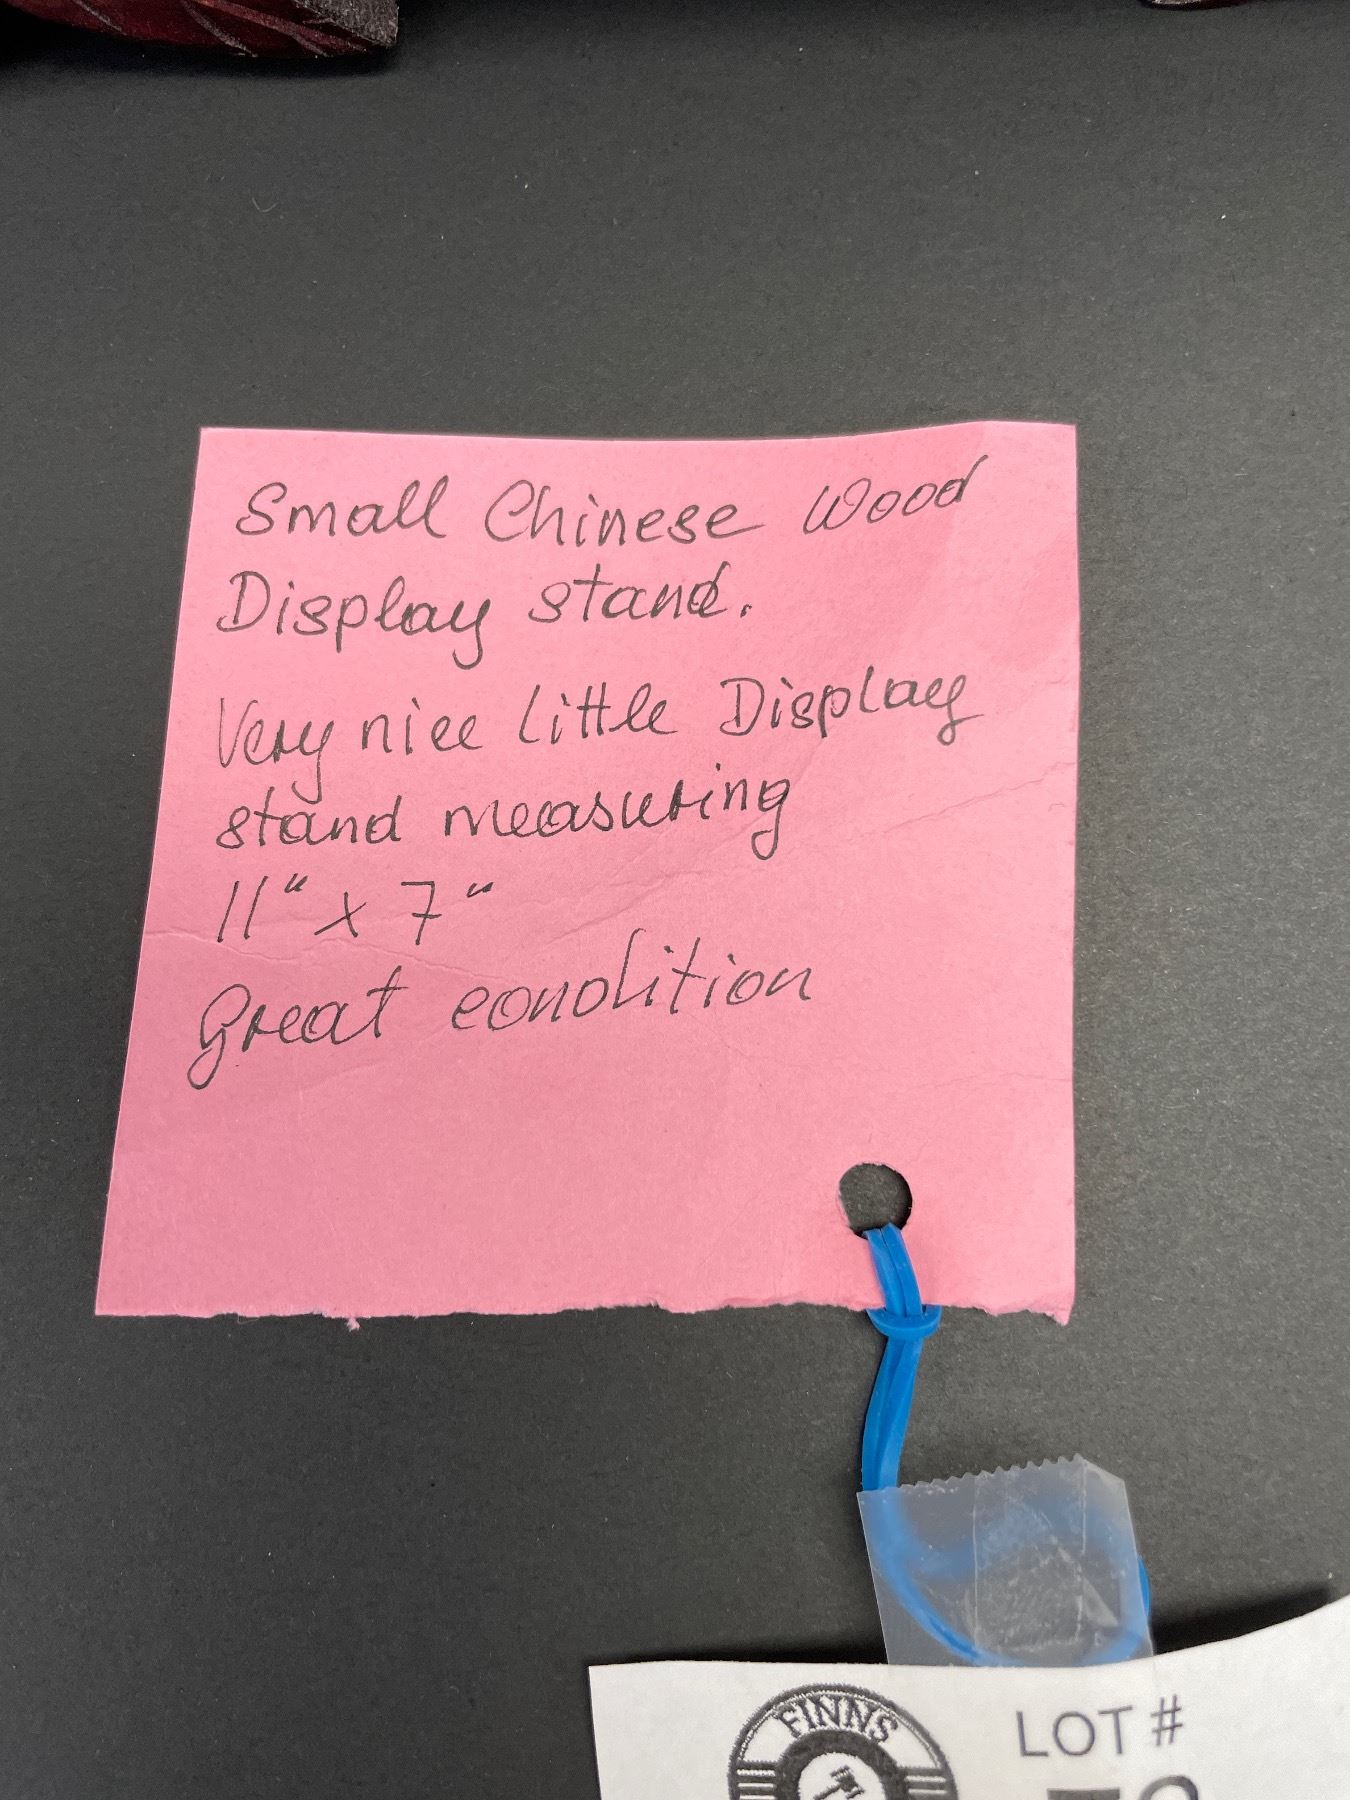 Small Chinese Wood
Display stand.
Very nice little Display
stand measuring
11" x 7"
Great condition
FINNS
LOT #